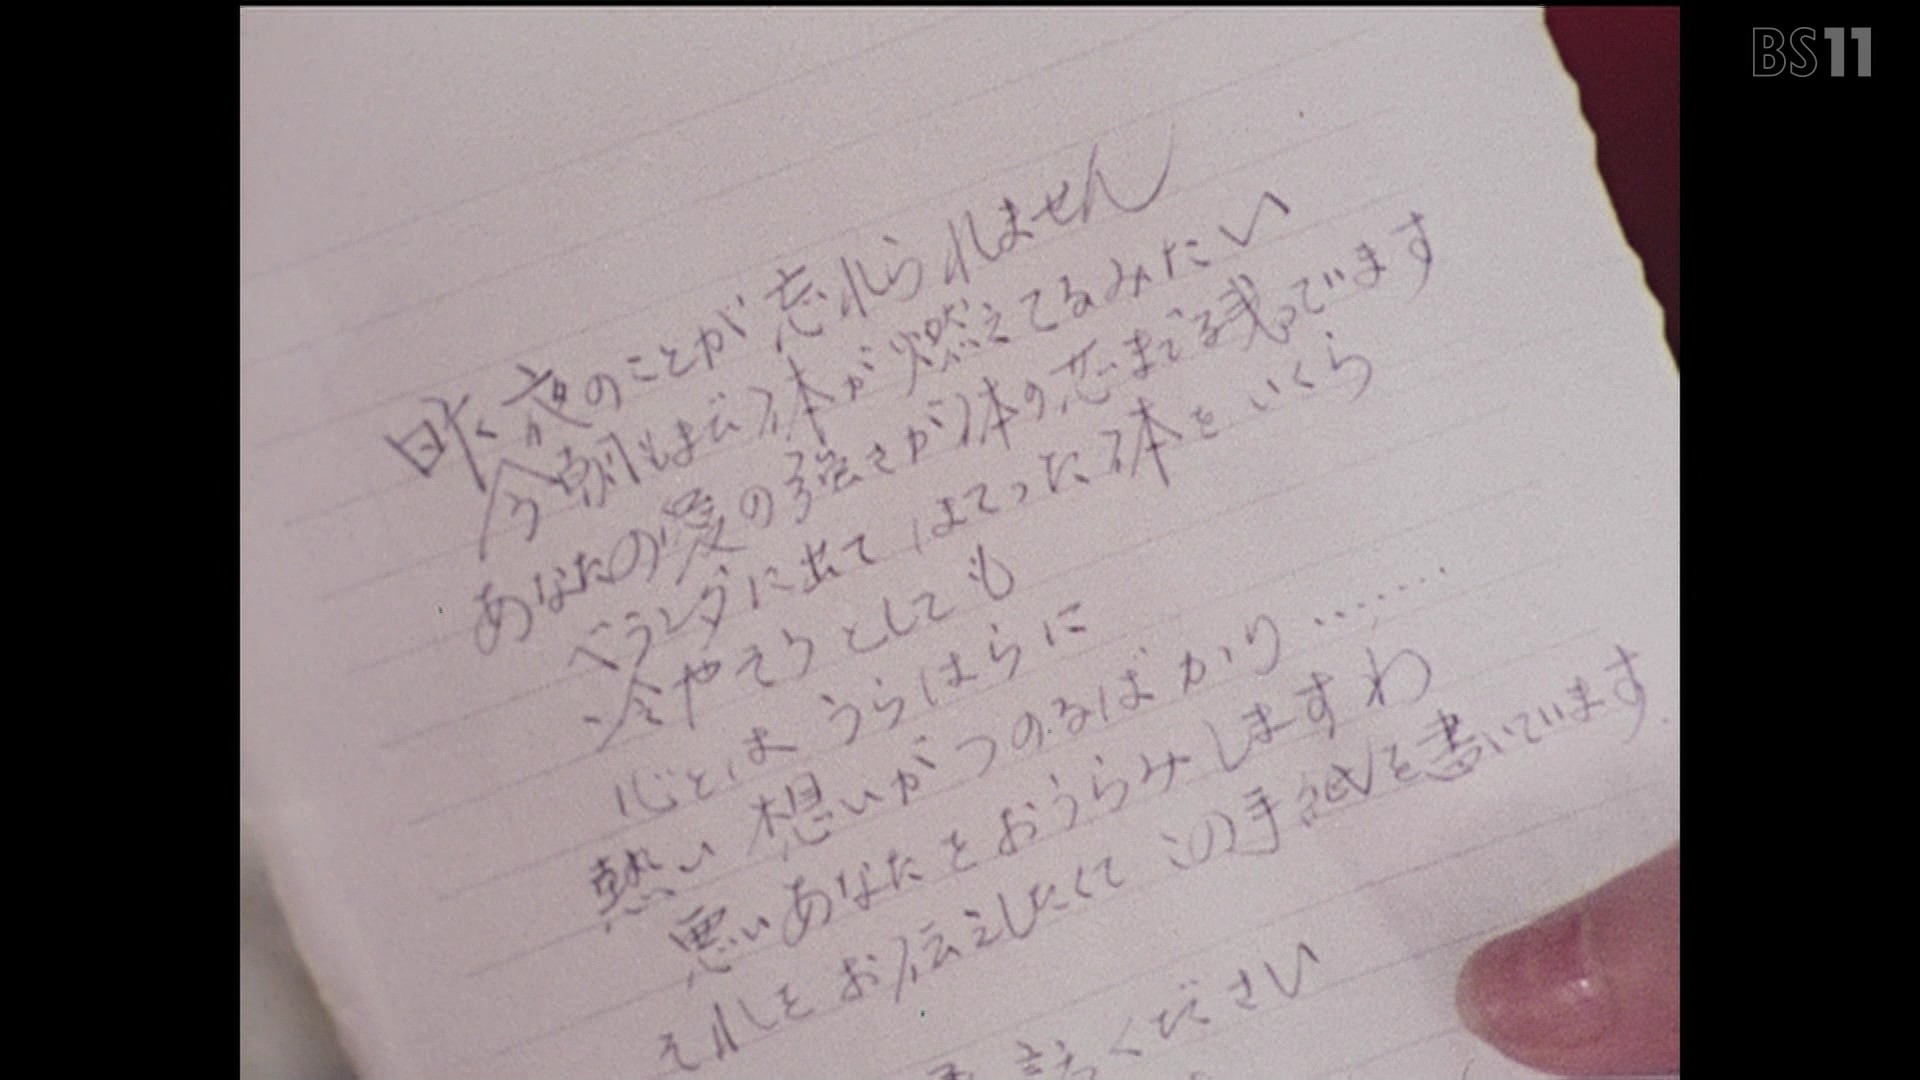 BS11
昨夜のことが忘れられません
今朝もまだ体が燃えてるみたい
あなたの愛の強さが体の芯まで残っています
ベランダに出てほてった体をいくら
冷やそうとしても
心とはうらはらに
熱い想いがつのるばかり……
悪いあなたをおうらみしますわ
それをお伝えしたくてこの手紙を書いています
話ください